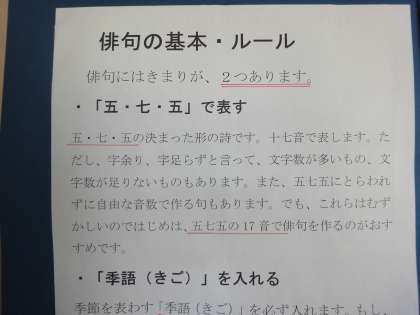 俳句の基本・ルール
俳句にはきまりが、２つあります。
・「五・七・五」で表す
五・七・五の決まった形の詩です。十七音で表します。た
だし、字余り、字足らずと言って、文字数が多いもの、文
字数が足りないものもあります。また、五七五にとらわれ
ずに自由な音数で作る句もあります。でも、これらはむず
かしいのではじめは、五七五の 17 音で俳句を作るのがおす
すめです。
・「季語（きご）」を入れる
季節を表わす「季語（きご）」を必ず入れます。もし、